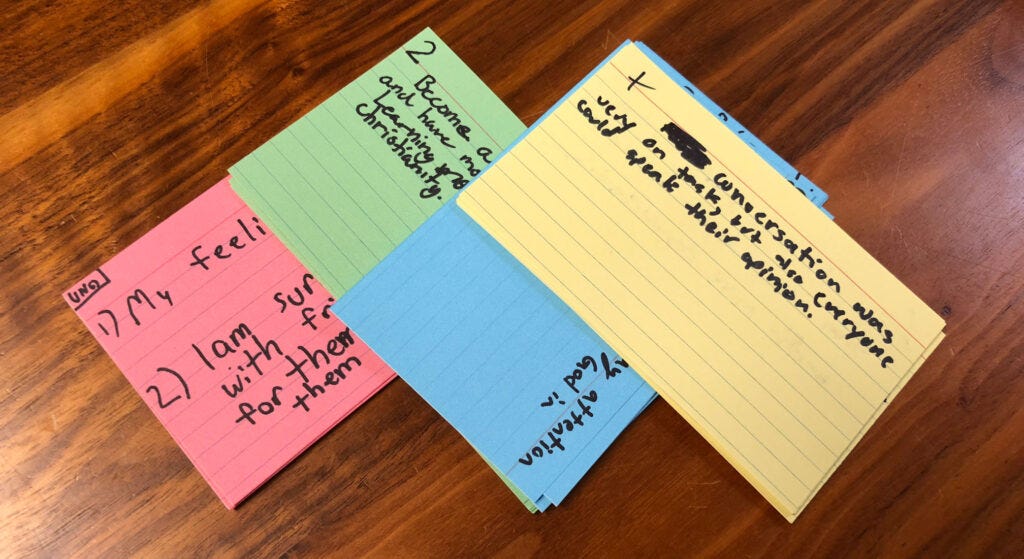 UNO
1) My feeli
2) I am sur
with fri
for them
them
2 Become a
and have mo
learning
Christianity.
attention
God in
+
conversation was
very on task, but also everyone
could speak their opinion.